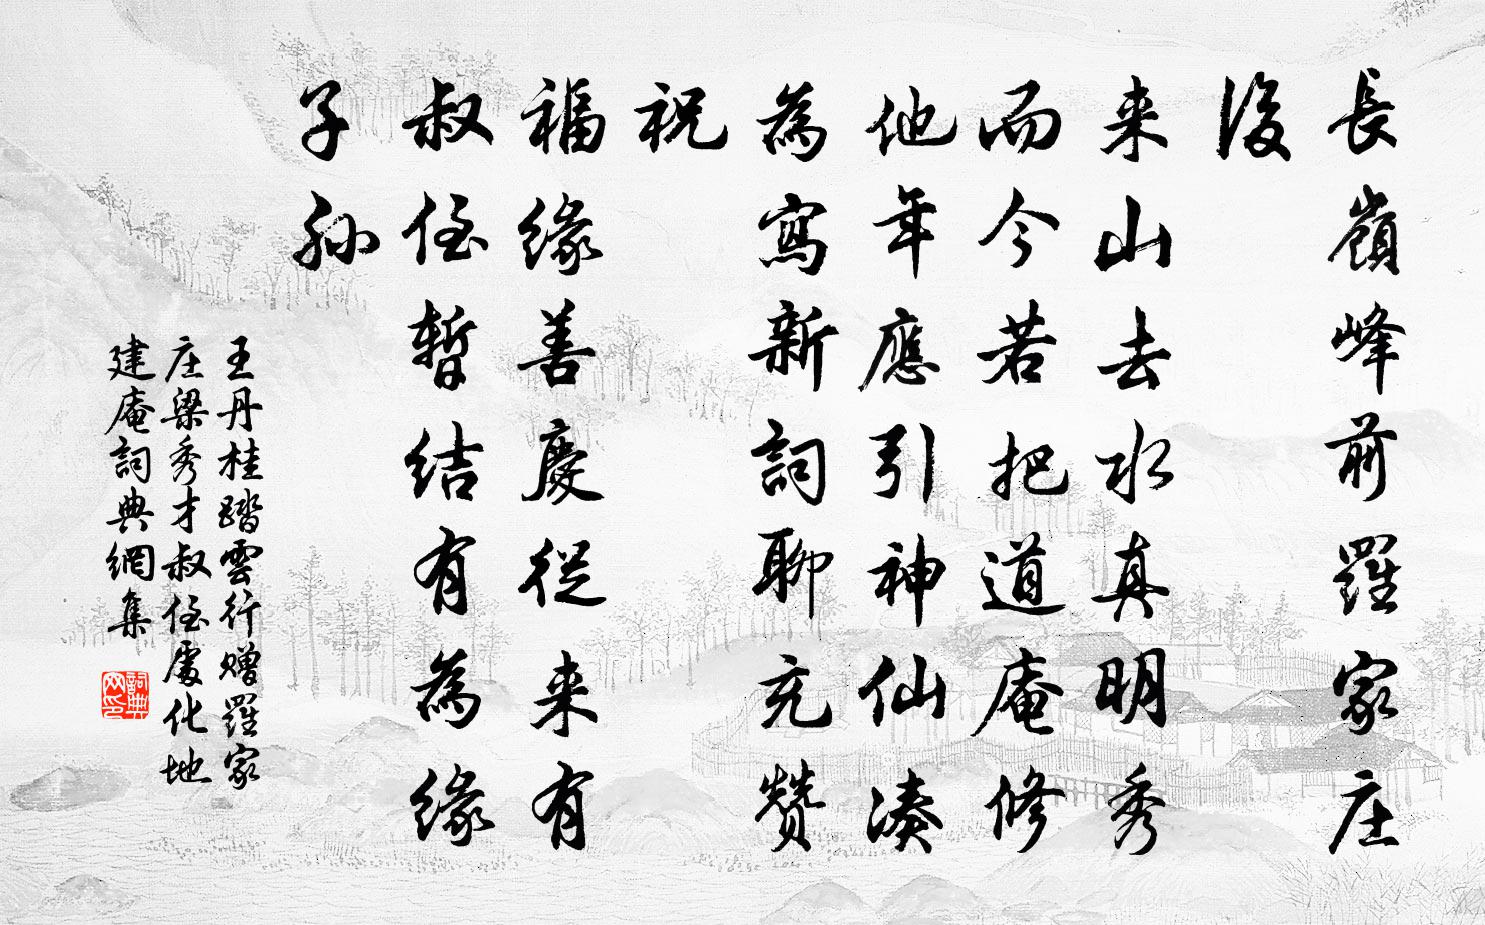 長嶺峰前羅家庄
後
来山去水真明秀
而今若把道庵修
他年應引神仙湊
為寫新詞聊充贊
祝
福緣善慶從来有
叔侄暫結有為緣
子孫
王丹桂踏雲行贈羅家
庄梁秀才叔侄處化地
建庵詞典網集
詞典
网印